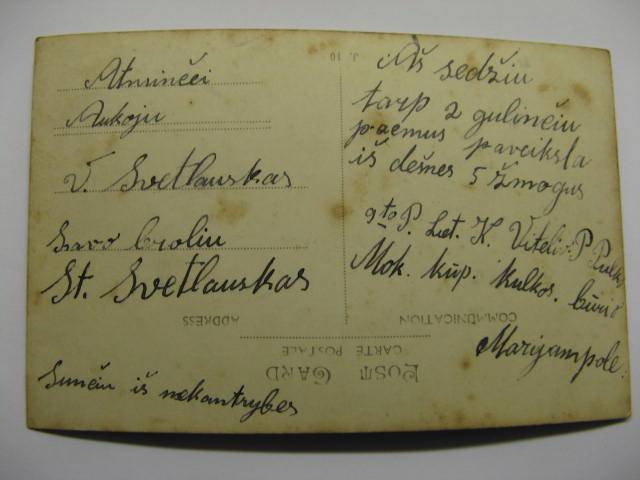 Atminčei
Aukoju
V. Svetlauskas
savo broliu
St. Svetlauskas
Sunčiu iš nekantrybes
J. 10
Aš sedžiu
tarp 2 gulinčiu
paemus paveiksla
iš dešnes 5 žmogus
9to P. L.K. Vitenio P. Pulko
Mok. kúp. kulkos. būrio
Marijampole.
COMMUNICATION
ADDRESS
POST CARD
CARTE POSTALE